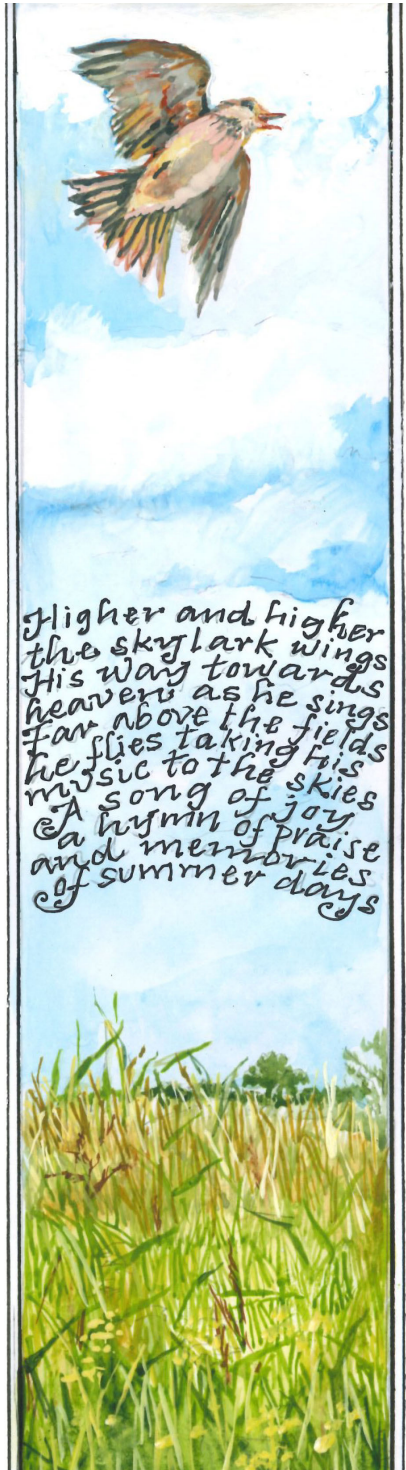 Higher and higher
the skylark wings
His way towards
heaven as he sings
Far above the fields
he flies taking his
music to the skies
A song of joy
a hymn of praise
and memories
of summer days